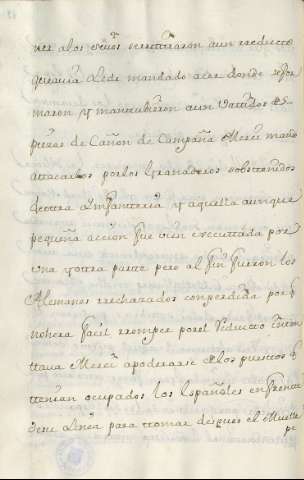 nes a los
se rretiraron a un rreducto
que avia Lede mandado acer donde se for
maron y mantubieron aun vattidos de 5
piezas de Cañon de Campaña Merci mando
attacarlos por los Granaderos sobsttenidos
de ottra Infantteria y aquella aunque
pequeña accion fue vien executtada por
una y otra partte pero al fin fueron los
Alemanes rrechazados con perdida por q
no hera facil rromper por el Reducto
ttava Merci apoderarse de los puesttos q
ttenian ocupados los Españoles en frente
de su Linea para ttomar despues el Muelle